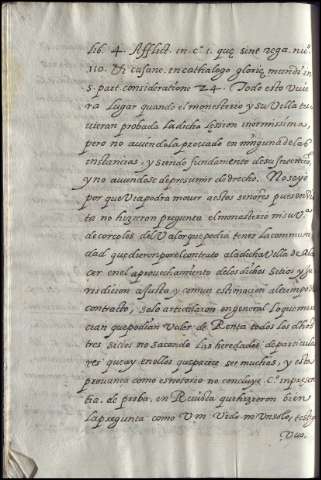 lib. 4. Afflict. in c.º 1. que sint rega. nu.º
110. et casane. in cathalogo gloriæ mundi in
5. part. consideratione 24. Todo esto tuvie
ra lugar quando el monesterio y su Villa tu
uieran probada la dicha lession inormissima,
pero no auiendola prouado en ninguna de las
instancias, y siendo fundamento de su
y no auiendose de presumir de derecho. No se yo
por que Via podra mouer a estos señores pues en
ta no hizieron pregunta el monesterio ni su V.ª
de corcoles del Valor que podia tener la comuni
dad que dieron por el contrato a la dicha Villa de Alco
cer en el aprouechamiento de los dichos Sitios y ju
risdicion a justa y comun estimacion al tiempo del
contracto, solo articularon en general lo que mere
cian que podian Valer de Renta todos los dichos
tres sitios no sacando las heredades de particula
res que ay en ellos que parece ser muchas, y esta
prouança como es notorio no concluye
de probar, en Reuista que hizieron bien
la pregunta como Vm Vido ni Un solo testigo